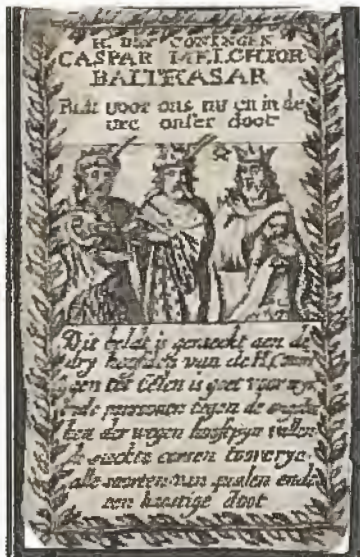 H. DRY CONINGEN
CASPAR MELCHIOR
BALTHASAR
Bidt voor ons nu en in de
ure onser doot
Dit beldt is geraeckt aen de
dry hoofden van de H. Conin
gen tot Célen is goet voor
ende personen tegen de
der wegen hooftpyn vallen
de sieckte corsen toverye
alle soorten van qualen ende
een haestige doot